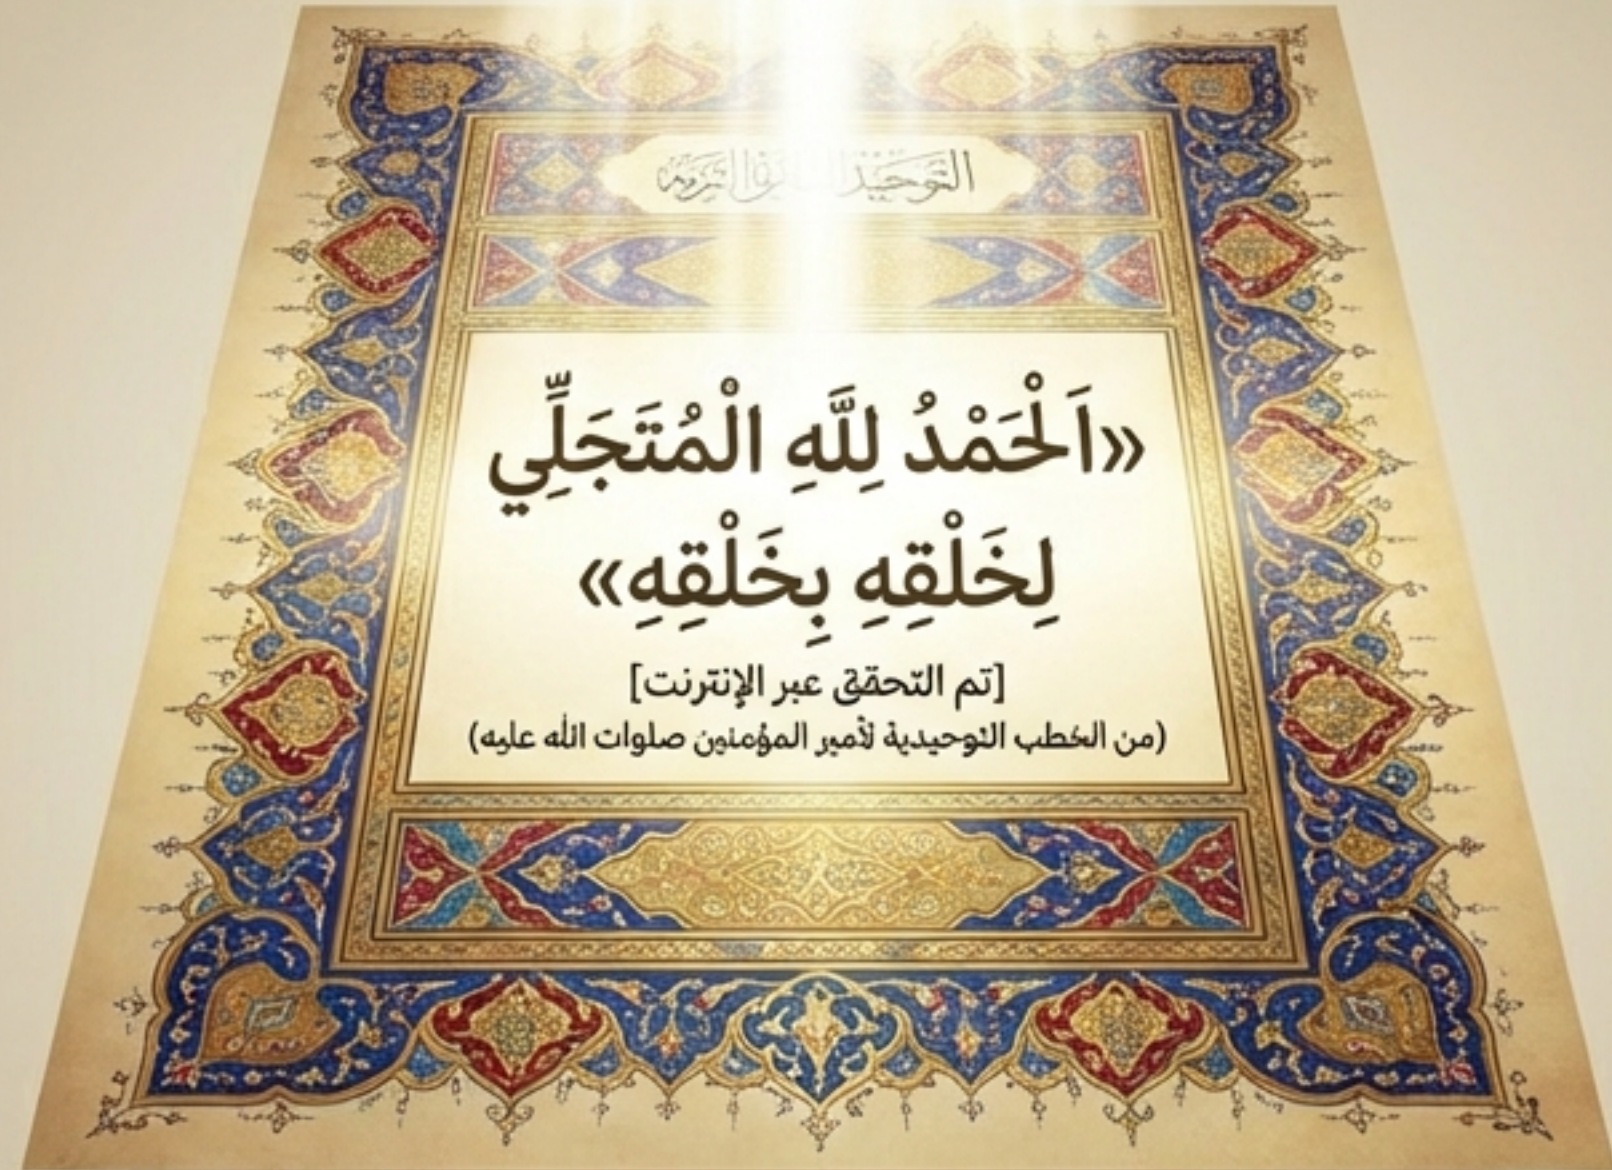 التوحيد
«اَلْحَمْدُ لِلَّهِ الْمُتَجَلِّي
لِخَلْقِهِ بِخَلْقِهِ»
[تم التحقق عبر الإنترنت]
(من الخطب التوحيدية لأمير المؤمنين صلوات الله عليه)